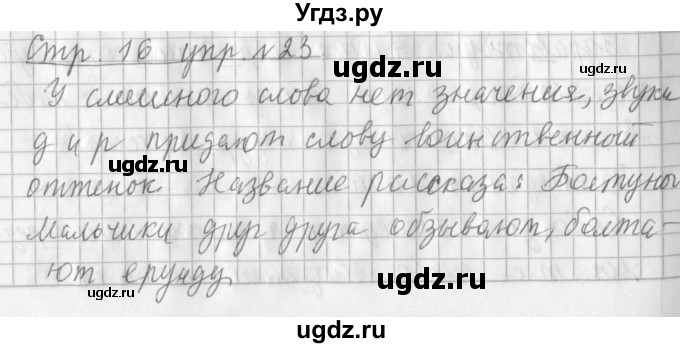 Угдз.ру
Стр. 16 упр. №23
ugdz.ru
У смешного слова нет значения, звуки
ugdz.ru
д и р придают слову воинственный
ugdz.ru
оттенок. Название рассказа: Болтуны
ugdz.ru
Мальчики друг друга обзывают, болта-
ugdz.ru
ugdz.ru
ют ерунду
ugdz.ru
ugdz.ru